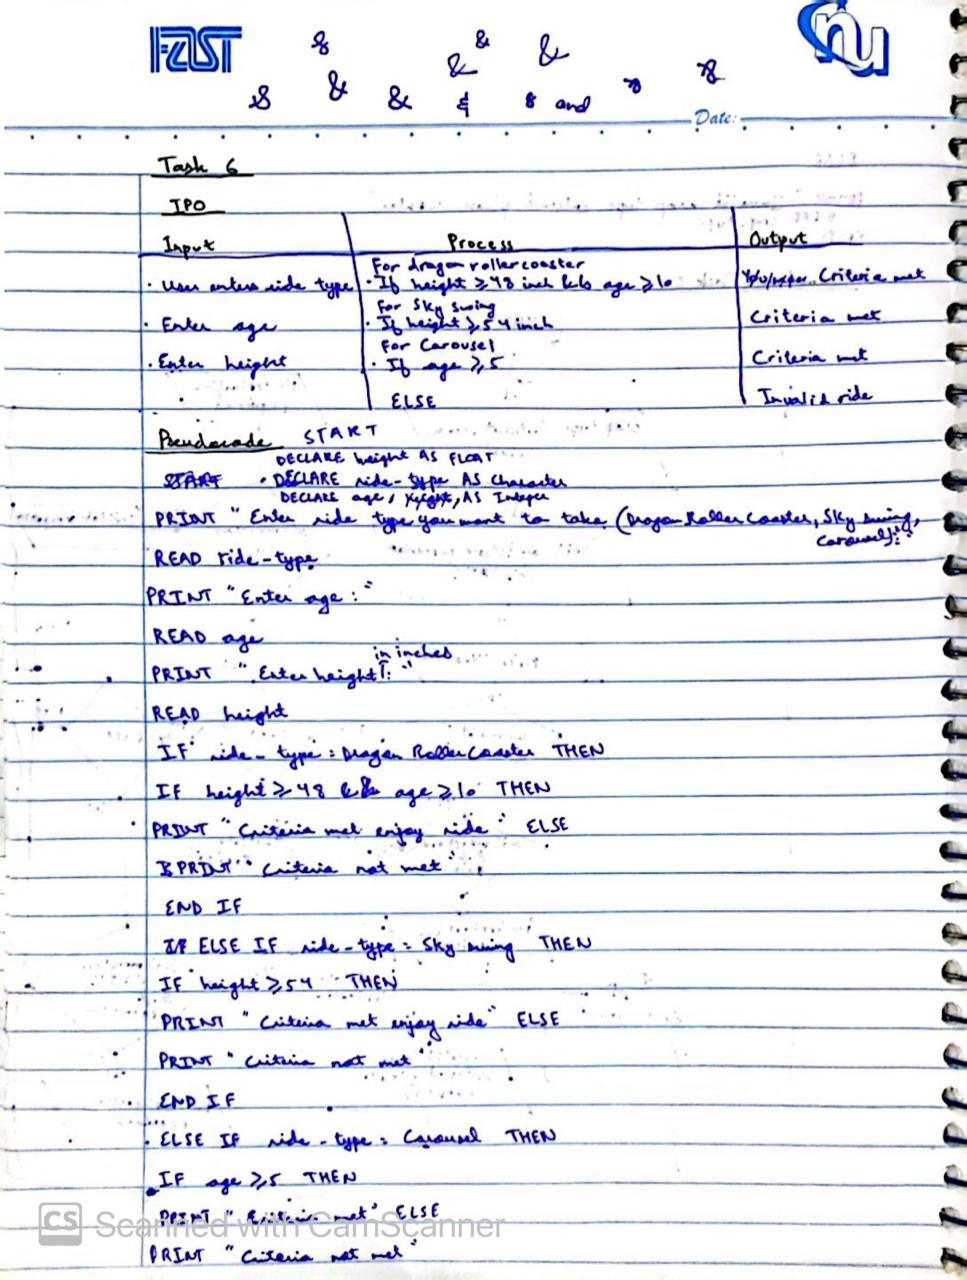 FAST
nu
& & &
& & & & & and & &
Date:
Task 6
IPO
Input Process Output
For dragon rollercoaster
· User enters ride type · If height ≥ 48 inch && age ≥ 10 Criteria met
For Sky swing
· Enter age · If height ≥ 54 inch Criteria met
For Carousel
· Enter height · If age ≥ 5 Criteria met
ELSE Invalid ride
Pseudocode START
DECLARE height AS FLOAT
START · DECLARE ride-type AS Character
DECLARE age, AS Integer
PRINT "Enter ride type you want to take (Dragon Roller Coaster, Sky swing,
Carousel):"
READ ride-type
PRINT "Enter age :"
READ age
in inches
PRINT "Enter height :"
READ height
IF ride-type = Dragon Roller Coaster THEN
IF height ≥ 48 && age ≥ 10 THEN
PRINT "Criteria met enjoy ride" ELSE
PRINT "Criteria not met"
END IF
ELSE IF ride-type = Sky swing THEN
IF height ≥ 54 THEN
PRINT "Criteria met enjoy ride" ELSE
PRINT "Criteria not met"
END IF
ELSE IF ride-type = Carousel THEN
IF age ≥ 5 THEN
PRINT "Criteria met" ELSE
PRINT "Criteria not met"
CS Scanned with CamScanner